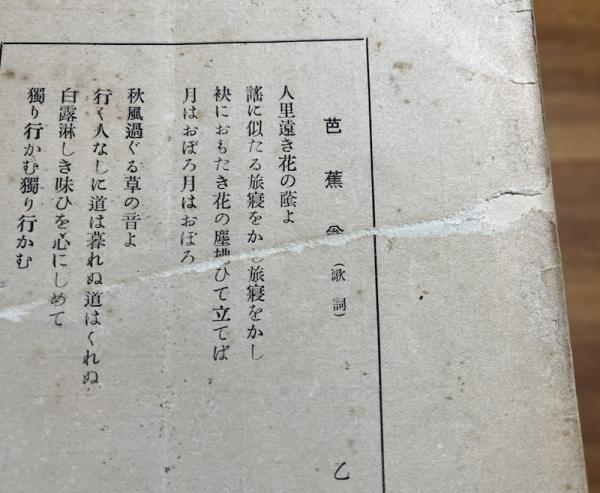 芭蕉翁（歌詞）
乙
人里遠き花の蔭よ
謠に似たる旅寢をかし旅寢をかし
袂におもたき花の塵拂ひて立てば
月はおぼろ月はおぼろ
秋風過ぐる草の音よ
行く人なしに道は暮れぬ道はくれぬ
白露淋しき味ひを心にしめて
獨り行かむ獨り行かむ